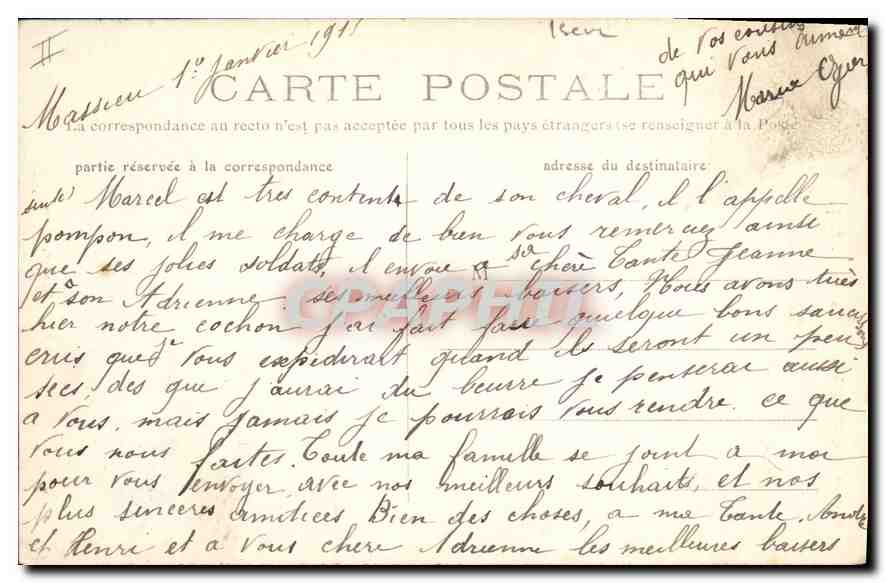 II
Massieu 1º Janvier 1911
Isere
CARTE POSTALE
La correspondance au recto n'est pas acceptée par tous les pays étrangers (se renseigner à la Poste
partie réservée à la correspondance
adresse du destinataire
Marcel est tres contente de son cheval, il l'appelle
pompon, il me charge de bien vous remerciez ainsi
que ses jolies soldats, il envoie a sa chère Tante Jeanne
et a son Adrienne ses meilleurs baisers, Nous avons tués
hier notre cochon j'ai fait faire quelque bons sauci
ssons
crus que je vous expédirait quand ils seront un peu
secs, des que j'aurai du beurre je penserai aussi
a vous, mais jamais je pourrais vous rendre ce que
vous nous faites. Toute ma famille se joint a moi
pour vous envoyer avec nos meilleurs souhaits, et nos
plus sinceres amitiees Bien des choses, a ma Tante, André
et Henri et a vous chere Adrienne les meilleures baisers
de vos cousins
qui vous aiment
Marie Ogier
CPAPHIL